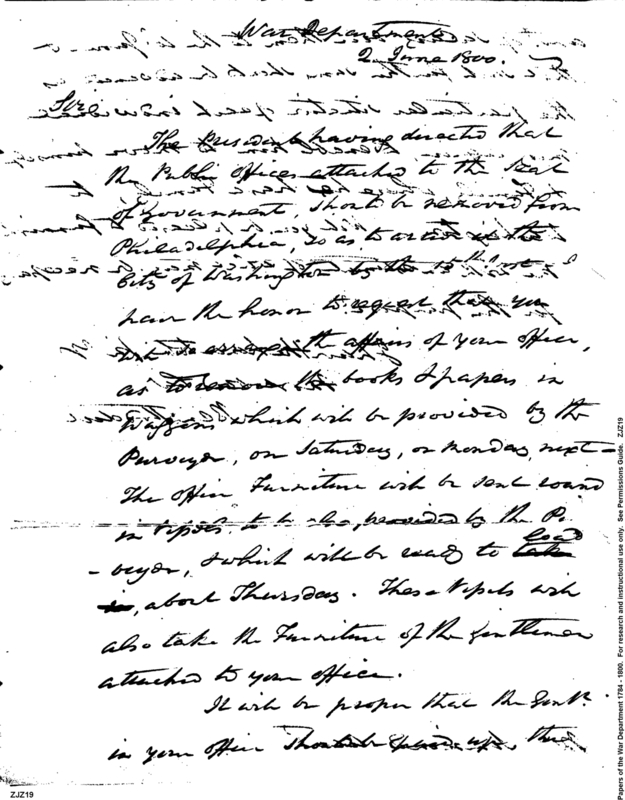 War Department
2 June 1800.
Sir
The President having directed that
the Public Offices attached to the Seat
of Government, should be removed from
Philadelphia, so as, to in the
City of Washington by the 15th
have the honor to request that you
the affairs of your office,
as to remove the books & papers in
Waggons which will be provided by the
Purveyor, on Saturday, or Monday next –
The Office Furniture will be sent round
in Vessels to be also, provided by the Pu
- veyor, & which will be ready to take load
in, about Thursday. These Vessels will
also take the Furniture of the Gentlemen
attached to your office.
It will be proper that the Gentn.
in your office should pack up, their
ZJZ19
Papers of the War Department 1784 - 1800. For research and instructional use only. See Permissions Guide. ZJZ19